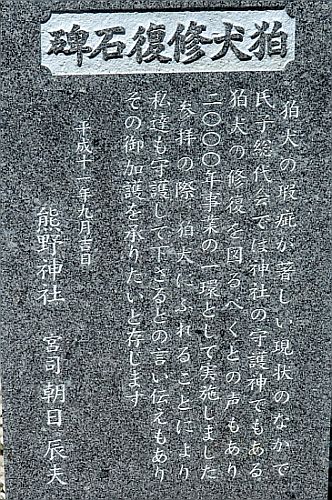 碑石復修犬狛
狛犬の瑕疵が著しい現状のなかで
氏子総代会では神社の守護神でもある
狛犬の修復を図るべくとの声もあり
二〇〇〇年事業の一環として実施しました
参拝の際、狛犬にふれることにより
私達も守護して下さるとの言い伝えもあり
その御加護を承りたいと存じます
平成十二年九月吉日
熊野神社 宮司 朝日辰夫